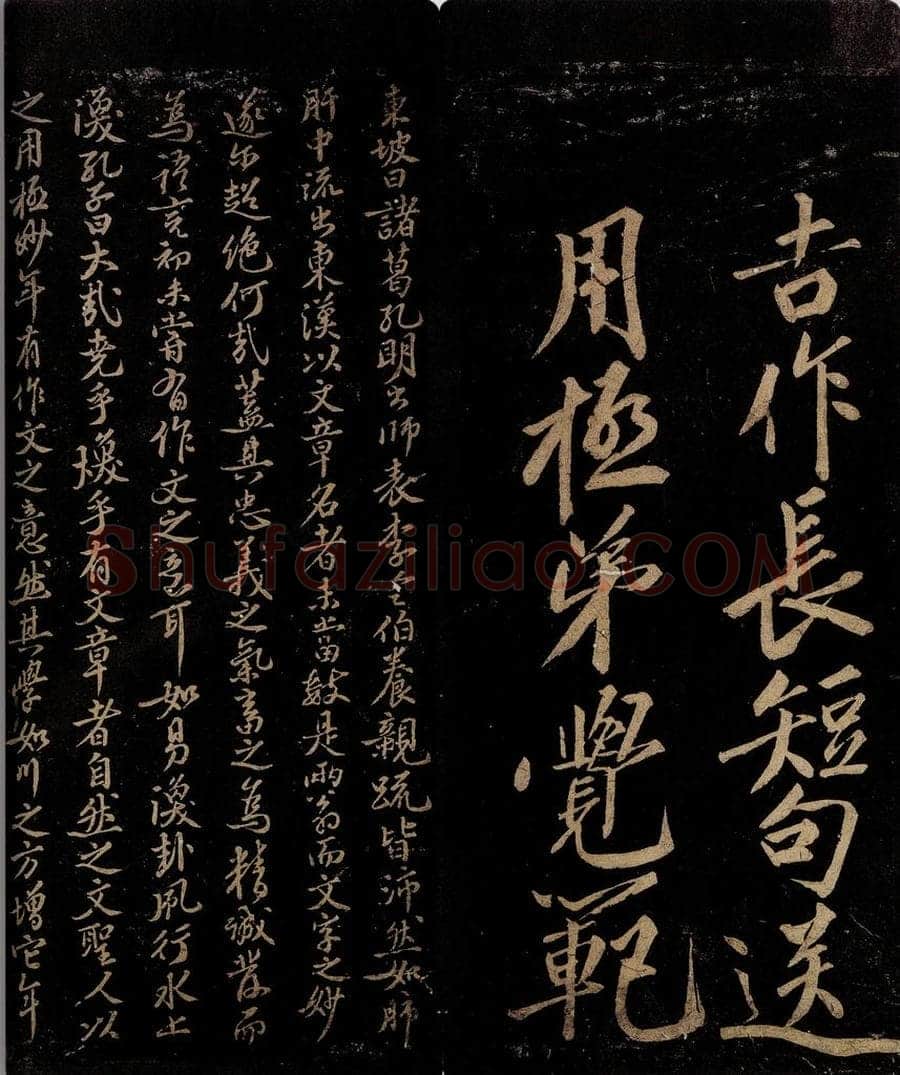 吉作長短句送
用極弟覺範
東坡曰諸葛孔明出師表李令伯養親疏皆沛然如肺
肝中流出東漢以文章名者未嘗數是兩翁而文字之妙
遂尔超絶何哉蓋其忠義之氣畜之為精誠發而
為語言初未嘗有作文之意耳如易渙卦風行水上
渙孔子曰大哉堯乎煥乎有文章者自然之文聖人以
之用極妙年有作文之意然其學如川之方增它年
Shufaziliao.COM